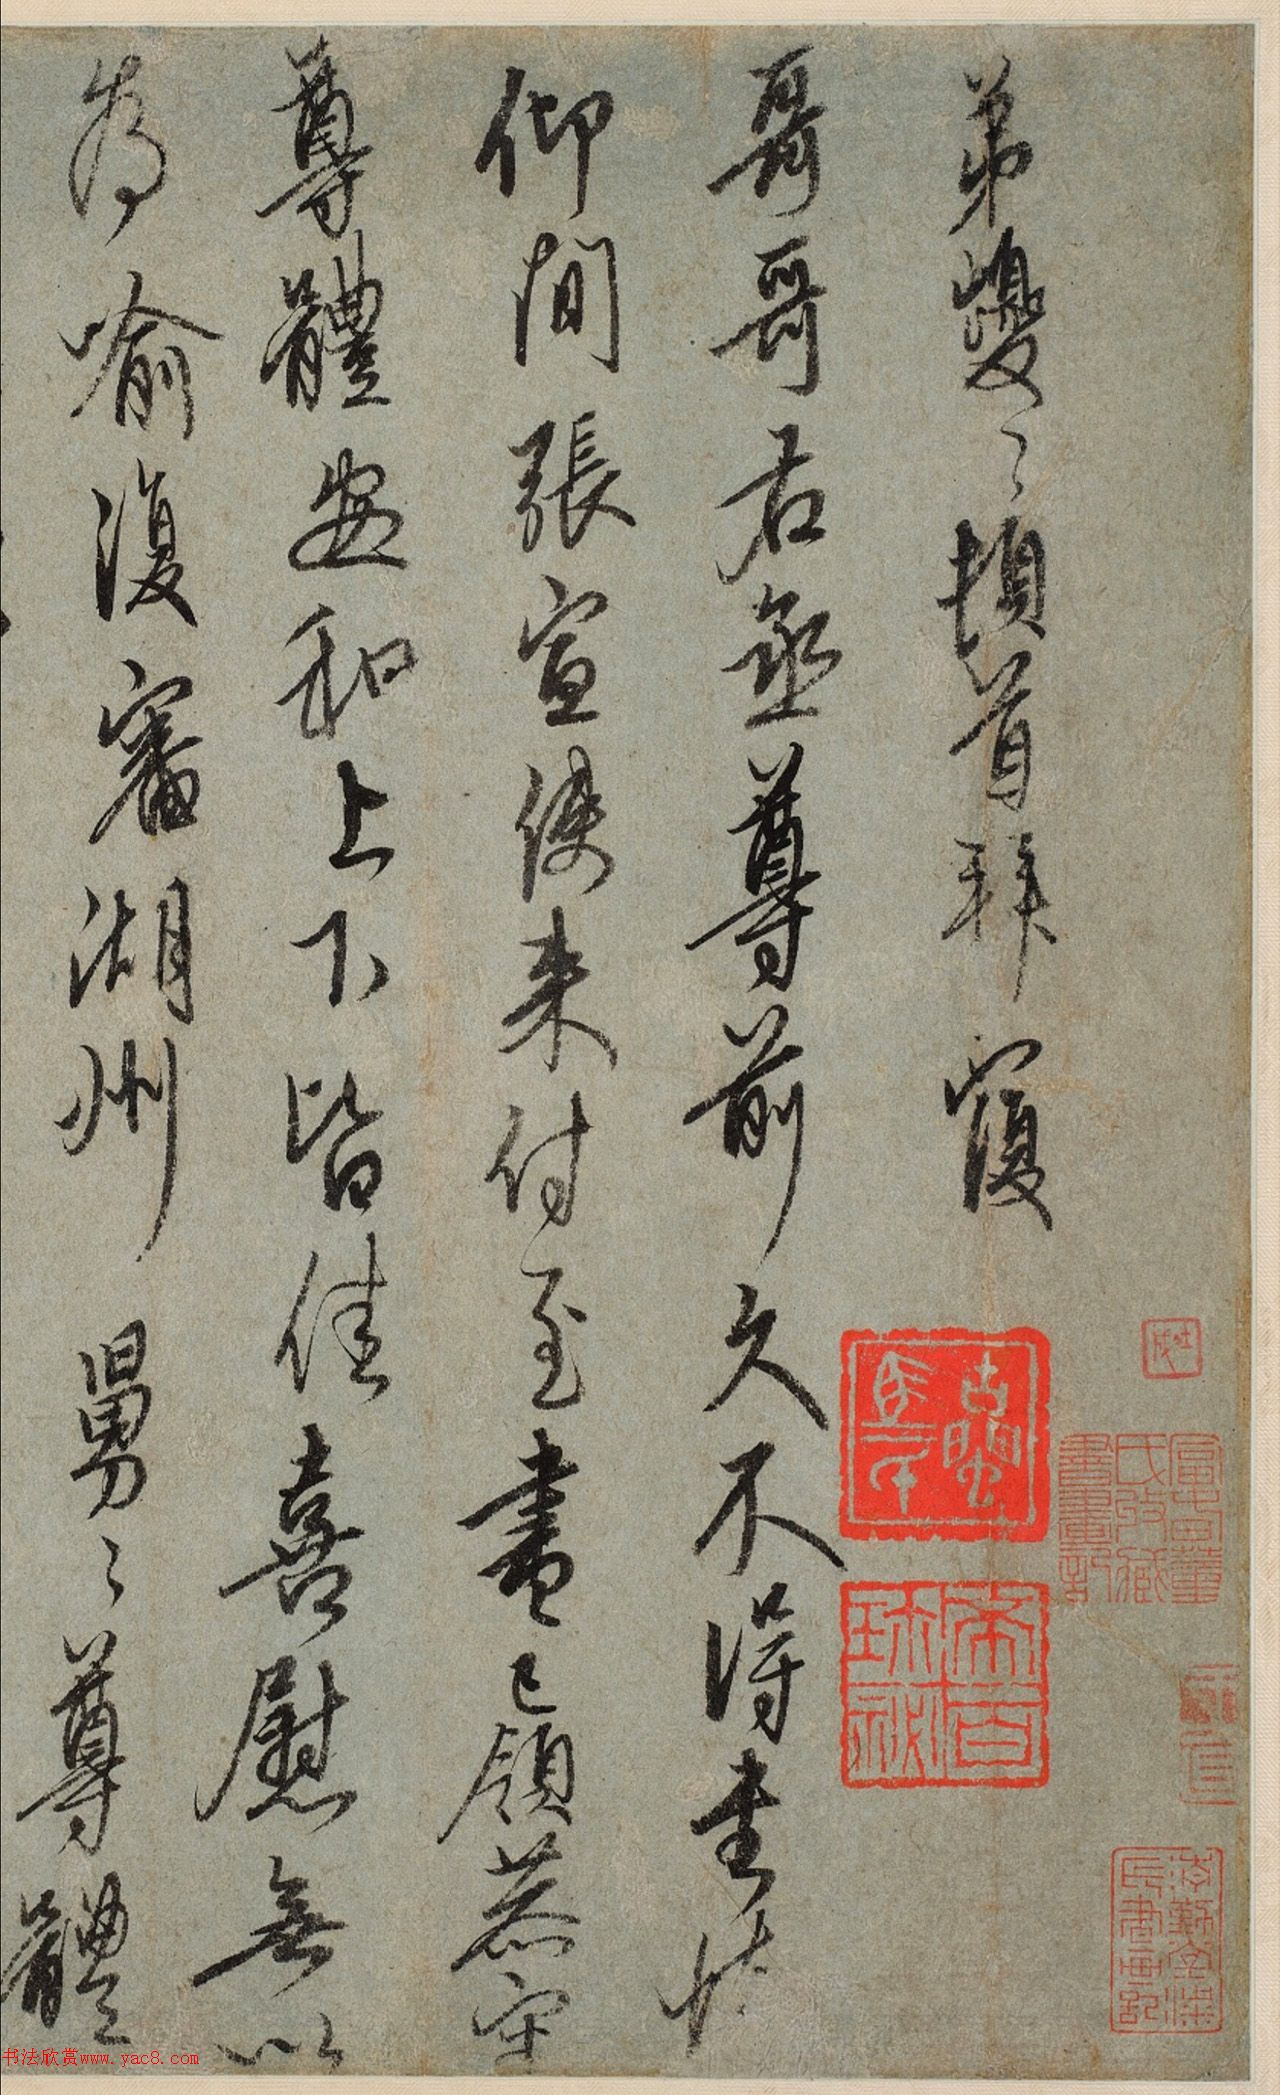 弟燮〻頓首拜覆
哥哥右丞尊前久不得書怀
仰間張宣使來付至書已領恭审
尊體安和上下皆佳喜慰無以
為喻復審湖州舅〻尊體
书法欣赏www.yac8.com